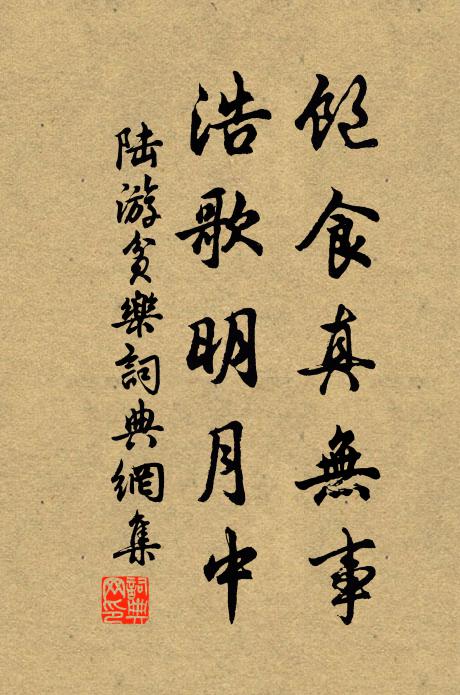 飽食真無事
浩歌明月中
陸游貧樂詞典網集
詞典網印